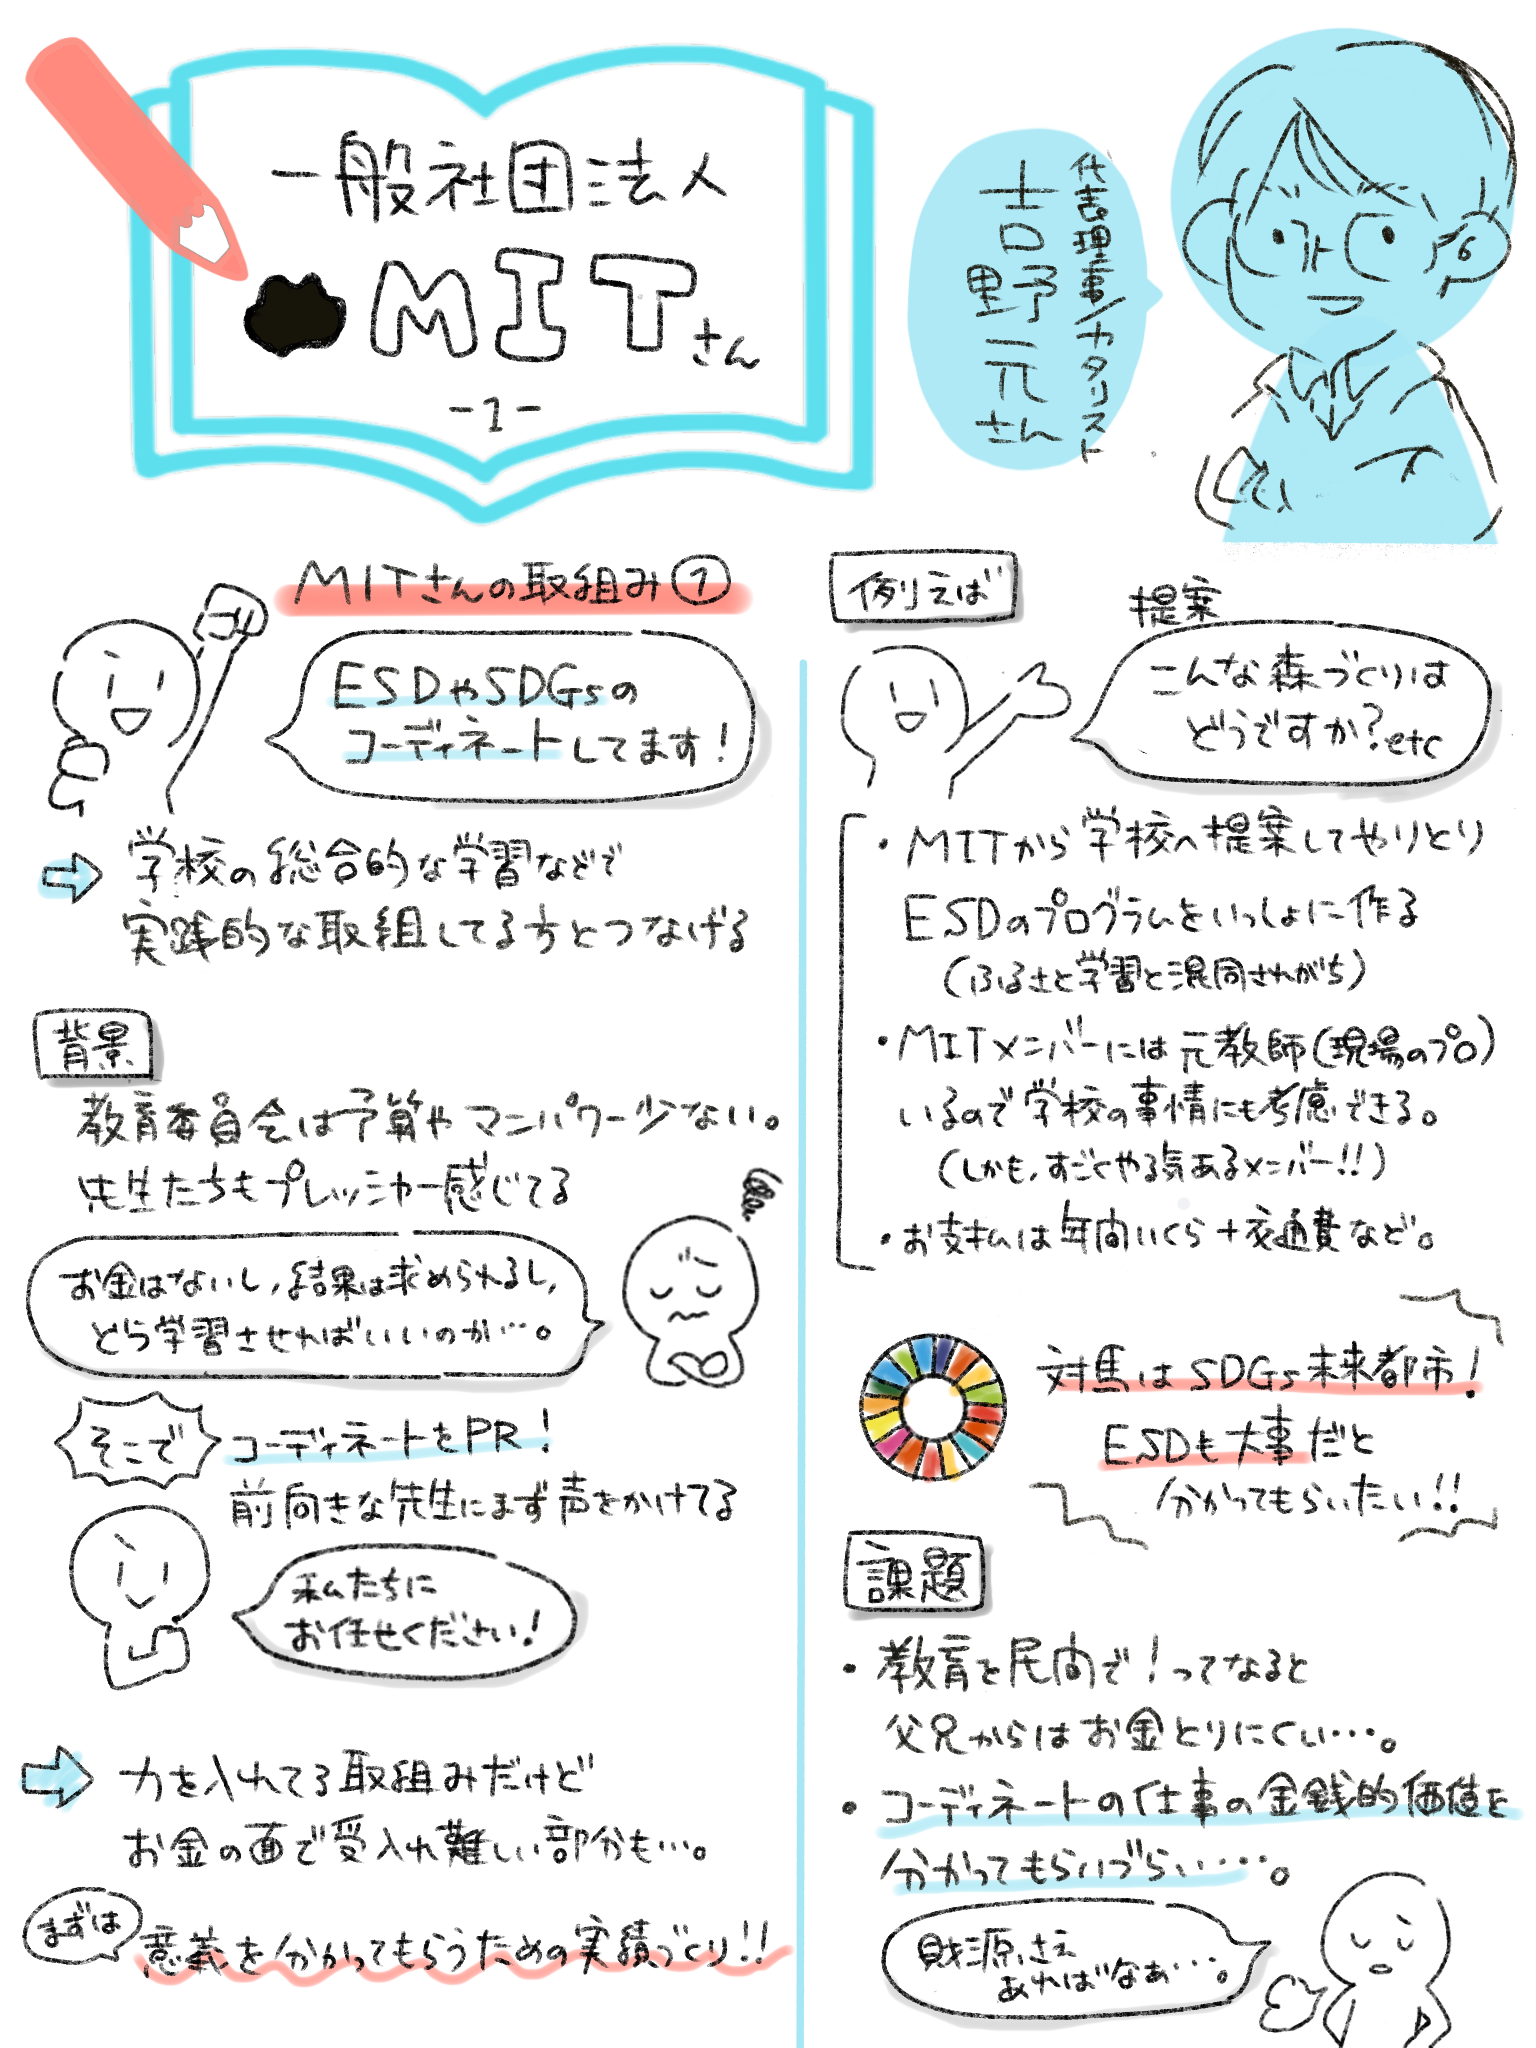 一般社団法人
MITさん
-1-
代表理事/カタリスト
吉野 元さん
MITさんの取組み①
ESDやSDGsの
コーディネートしてます!
学校の総合的な学習などで
実践的な取組してる方とつなげる
背景
教育委員会は予算やマンパワー少ない。
先生たちもプレッシャー感じてる
お金はないし、結果は求められるし、
どう学習させればいいのか…。
そこで
コーディネートをPR!
前向きな先生にまず声をかけてる
私たちに
お任せください!
力を入れてる取組みだけど
お金の面で受入れ難しい部分も…。
まずは
意義を分かってもらうための実績づくり!!
例えば
提案
こんな森づくりは
どうですか?etc
・MITから学校へ提案してやりとり
ESDのプログラムをいっしょに作る
(ふるさと学習と混同されがち)
・MITメンバーには元教師(現場のプロ)
いるので学校の事情にも考慮できる。
(しかも、すごくやる気あるメンバー!!)
・お支払は年間いくら+交通費など。
対馬はSDGs未来都市!
ESDも大事だと
分かってもらいたい!!
課題
・教育を民間で!ってなると
父兄からはお金とりにくい…。
・コーディネートの仕事の金銭的価値を
分かってもらいづらい‥‥。
財源さえ
あればなぁ…。